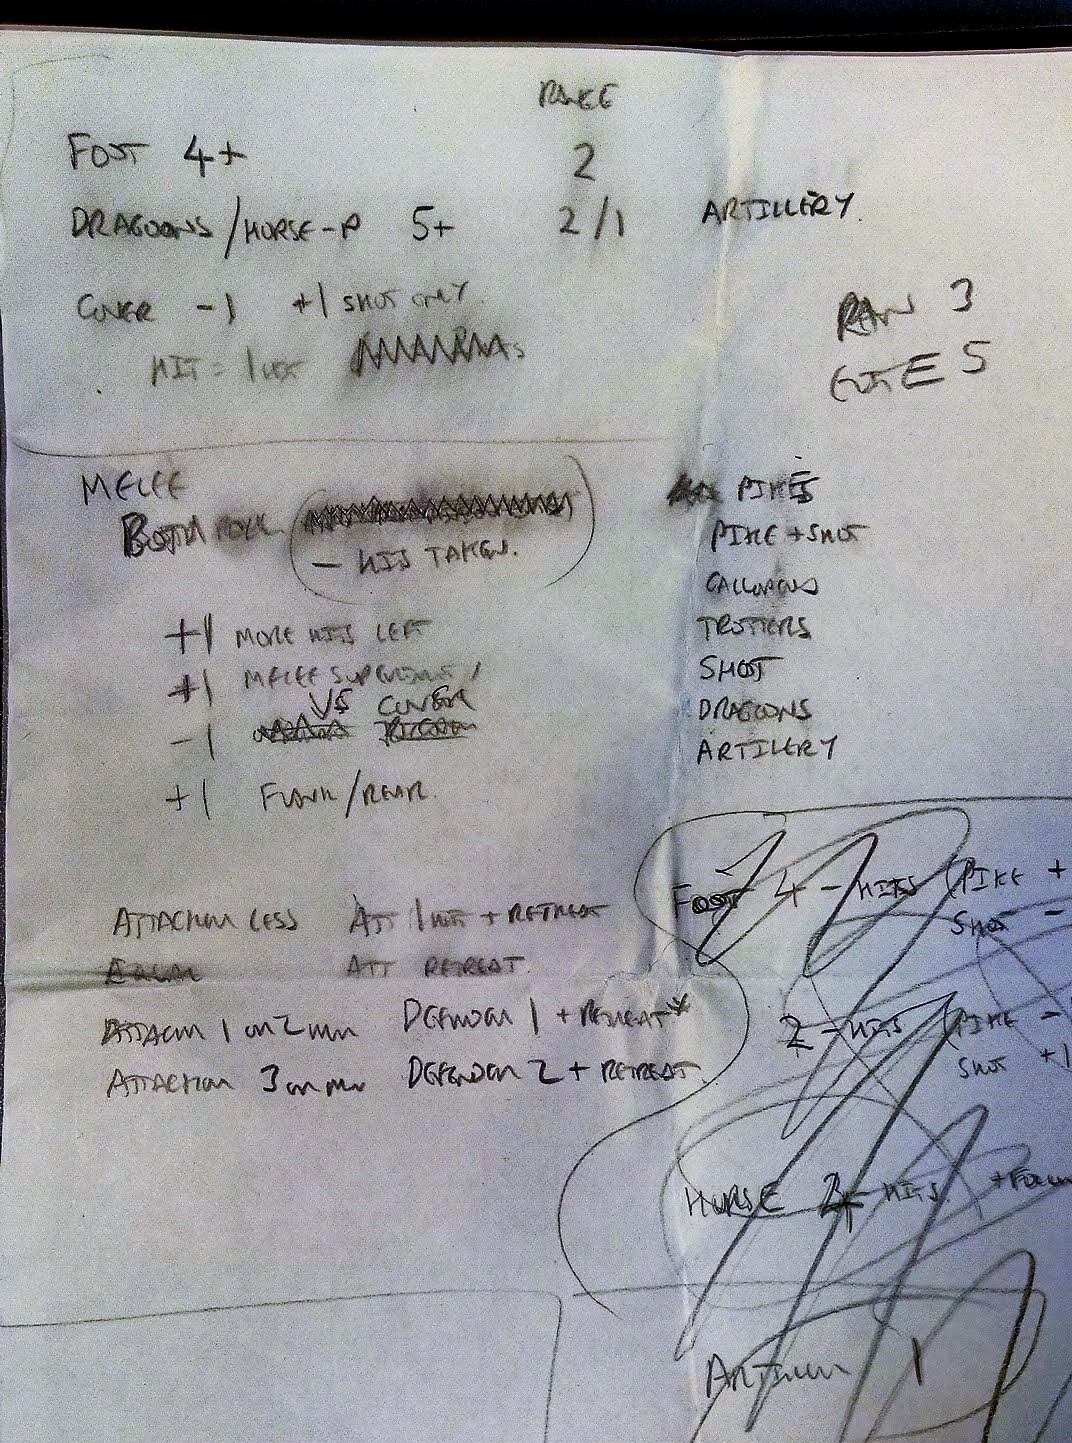 RANGE
FOOT 4+ 2
DRAGOONS/HORSE-P 5+ 2/1 ARTILLERY.
COVER -1 +1 SHOT ONLY
HIT = 1 HIT
RAW 3
ELITE 5
MELEE
BOTH ROLL
- HITS TAKEN.
+1 MORE HITS LEFT
+1 MELEE SUPERIORITY
VS COVER
-1
+1 FLANK/REAR.
PIKES
PIKE + SHOT
GALLOPERS
TROTTERS
SHOT
DRAGOONS
ARTILERY
ATTACKER LESS ATT 1 HIT + RETREAT
EQUAL ATT RETREAT
ATTACKER 1 OR 2 MORE DEFENDER 1 + RETREAT*
ATTACKER 3 OR MORE DEFENDER 2 + RETREAT
FOOT 4 - HITS (PIKE +
SHOT -
2 - HITS (PIKE -
SHOT +1
HORSE HITS
ARTILLERY 1